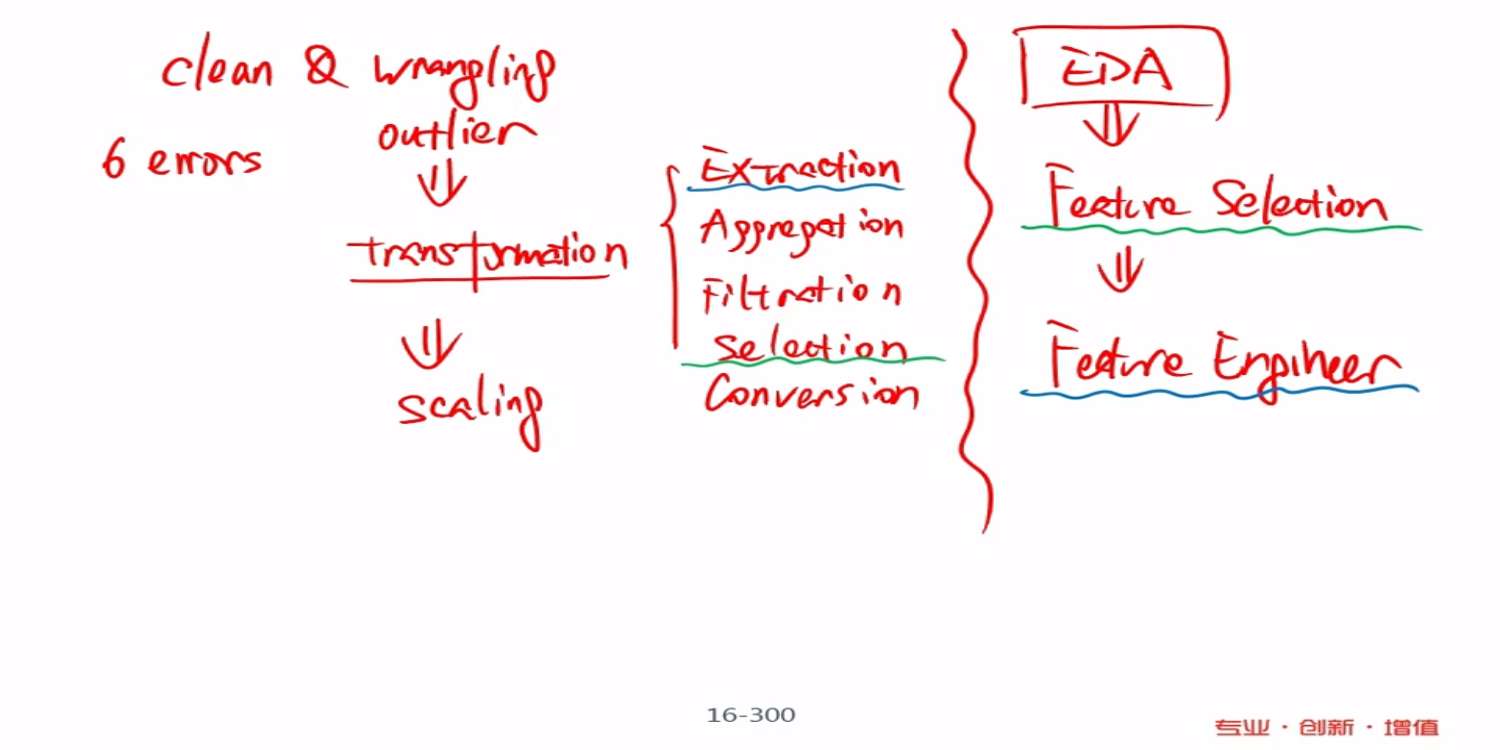 clean & wrangling
6 errors
outlier
transformation
scaling
Extraction
Aggregation
Filtration
Selection
Conversion
EDA
Feature Selection
Feature Engineer
16-300
专业·创新·增值